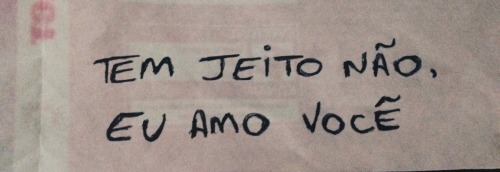 TEM JEITO NÃO,
EU AMO VOCẼ